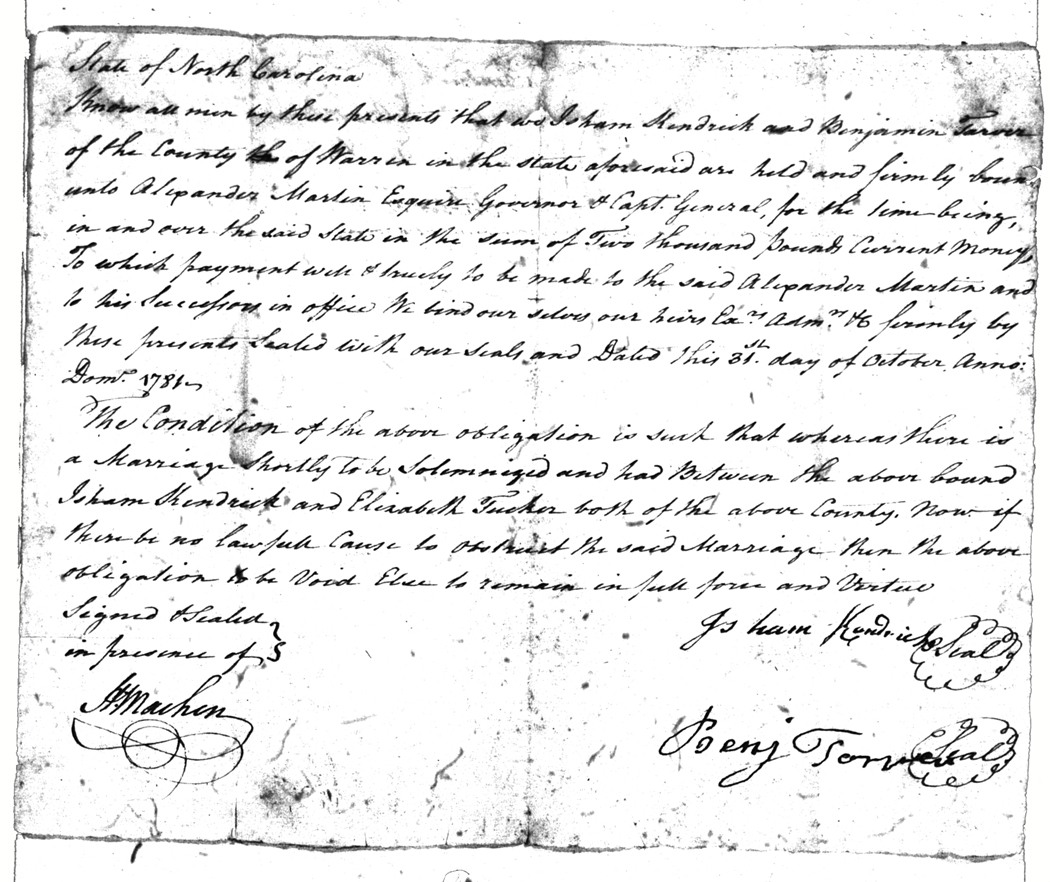 State of North Carolina
Know all men by these presents that we Isham Kendrick and Benjamin Tarver
of the County of Warren in the state aforesaid are held and firmly bound
unto Alexander Martin Esquire Governor & Capt. General, for the time being,
in and over the said State in the sum of Two thousand pounds Current Money,
To which payment well & truely to be made to the said Alexander Martin and
to his Successors in office We bind our selves our heirs Exrs. Admrs. &c firmly by
these presents Sealed with our seals and Dated this 31st. day of October Anno:
Domo. 1781
The Condition of the above obligation is such that whereas there is
a Marriage Shortly to be Solemnized and had Between the above bound
Isham Kendrick and Elizabeth Tucker both of the above County. Now if
there be no lawfull Cause to obstruct the said Marriage then the above
obligation to be Void Else to remain in full force and Virtue
Signed & Sealed
in presence of
Isham Kendrick Seal
Machen
Benj Tarver Seal